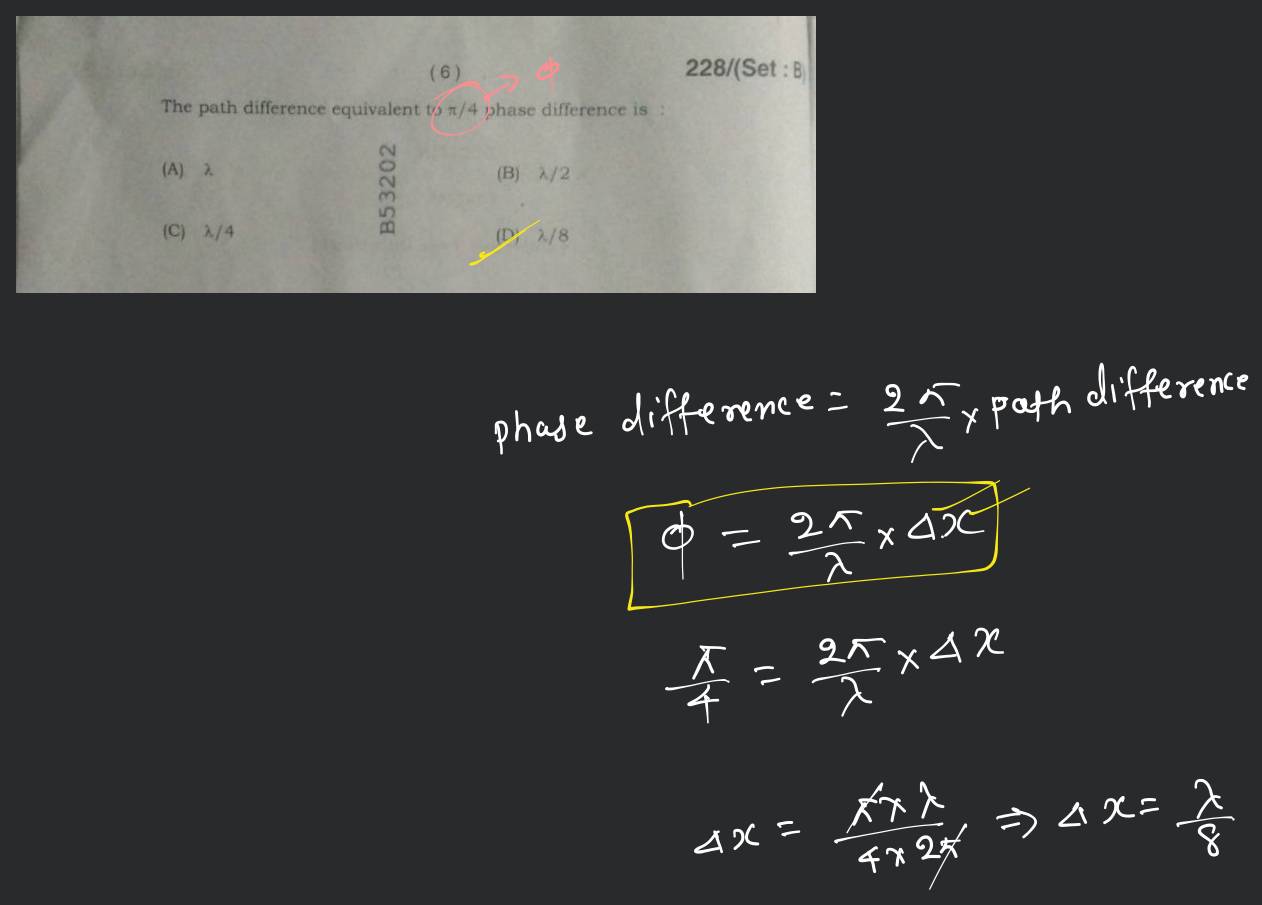 (6)
228/(Set : B)
ϕ
The path difference equivalent to π/4 phase difference is :
(A) λ
(B) λ/2
B53202
(C) λ/4
(D) λ/8
phase difference = 2π/λ × path difference
ϕ = 2π/λ × Δx
π/4 = 2π/λ × Δx
Δx = π×λ/4×2π ⇒ Δx = λ/8